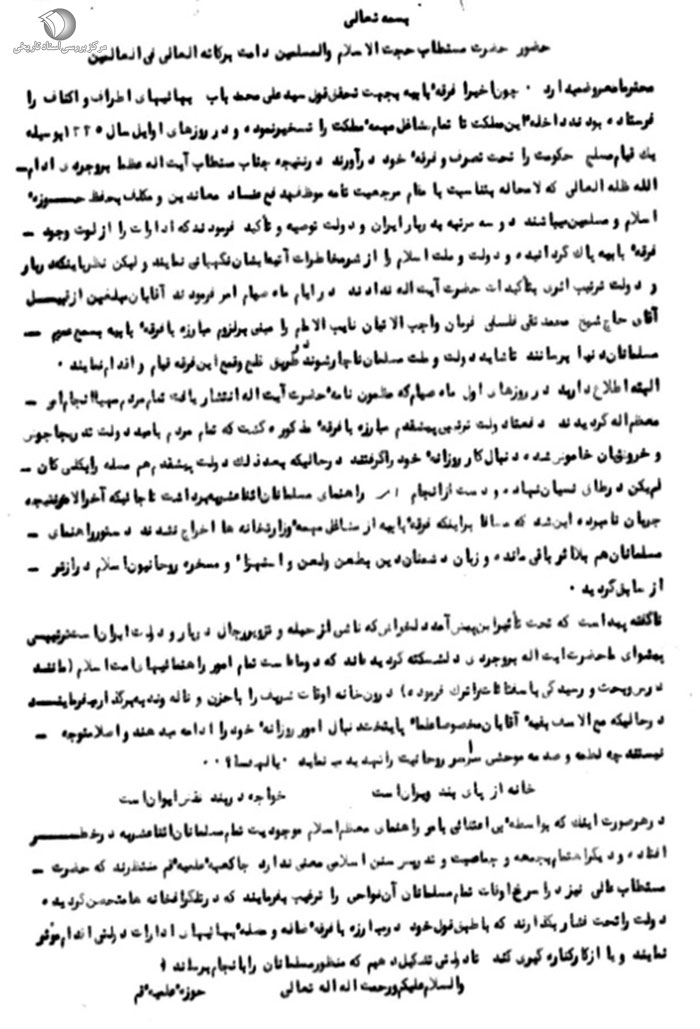 مرکز بررسی اسناد تاریخی
بسمه تعالی
حضور حضرت مستطاب حجت الاسلام والمسلمین دامت برکاته العالی فی العالمین
محترما معروضمیدارد . چون اخیرا فرقه بابیه بجهت تحقق قول سید علی محمد باب بهائیهای اطراف و اکناف را
فرستاده بودند داخله این مملکت تا تمام مشاغل مهمه مملکت را تسخیر نموده و در روزهای اوایل سال بوسیله
یك قیام مسلح حکومت را تحت تصرف و فرقه خود درآورند درنتیجه جناب مستطاب آیت اله عظما بروجردی ادام
الله ظله العالی که لامحاله بتناسب با مقام مرجعیت تامه موظف دفع فساد معاندین و مکلف بحفظ حوزه
اسلام و مسلمین میباشند دو سه مرتبه بدربار ایران و دولت توصیه و تأکید فرمودند که ادارات را از لوث وجود
فرقه بابیه پاك گردانیده و دولت و ملت اسلام را از شر مخاطرات آتیه ایشان نگهبانی نمایند و لیکن نظر باینکه دربار
و دولت ترتیب اثری بتأکیدات حضرت آیت اله ندادند در ایام ماه صیام امر فرمودند آقایان مبلغین از قبیل
آقای حاج شیخ محمد تقی فلسفی فرمان واجب الاتیان نایب الامام را مبنی بر لزوم مبارزه با فرقه بابیه بسمع عموم
مسلمانان دنیا برسانند تا شاید دولت و ملت مسلمان ناچار شوند در طریق قلع و قمع این فرقه قیام و اقدام نمایند .
البته اطلاع دارید در روزهای اول ماه صیام که مضمون نامه حضرت آیت اله انتشار یافت تمام مردم مهیا انجام امر
معظم اله گردیدند دفعتا دولت پیشقدم مبارزه با فرقه مذکوره گشت که تمام مردم بامید دولت تدریجا جوش
و خروششان خاموش شده و دنبال کار روزانه خود را گرفتند درحالیکه بعد ذلك دولت پیشقدم هم مسئله را بکلی کان
لم یکن در طاق نسیان نهاده و دست از انجام امر راهنمای مسلمانان اثناعشریه برداشت تا جائیکه آخرالامر نتیجه
جریان نامبرده این شد که مضافا براینکه فرقه بابیه از مشاغل مهمه وزارتخانه ها اخراج نشدند دستور راهنمای
مسلمانان هم بلااثر باقی مانده و زبان دشمنان دین بطعن و لعن و استهزاء و مسخره روحانیون اسلام درازتر
از سابق گردید .
ناگفته پیداست که تحت تأثیر این پیش آمد دلخراش که ناشی از حیله و تزویر رجال دربار و دولت ایران است
پیشوای ما حضرت آیت اله بروجردی دلشکسته گردیده اند که دو ماه است تمام امور راهنمائیهای امت اسلام (مانند
درس و بحث و رسیدگی باستفتائات را ترك فرموده) درون خانه اوقات شریف را با حزن و ناله وندبه برگذار میفرمایند
درحالیکه مع الاسف بقیه آقایان مخصوصا علماء پایتخت دنبال امور روزانه خود را ادامه میدهند و اصلا متوجه
نیستند چه لطمه و صدمه موحشی سراسر روحانیت را تهدید می نماید .
خانه از پای بند ویران است خواجه دربند نقش ایوان است
درهر صورت اینك که بواسطه بی اعتنائی بامر راهنمای معظم اسلام موجودیت تمام مسلمانان اثناعشریه در خطر
افتاده و دیگر اهتمام بجمعه و جماعت و تدریس سنن اسلامی معنی ندارد جامعه علمیه قم منتظرند که حضرت
مستطاب عالی نیز در اسرع اوقات تمام مسلمانان آن نواحی را ترغیب بفرمایند که در تلگرافخانه ها متحصن گردیده
دولت را تحت فشار بگذارند که یا طبق قول خود در مبارزه با فرقه ضاله و مسئله بهائیهای ادارات دولتی اقدام موثر
نمایند و یا از کار کناره گیری کند تا دولتی تشکیل دهیم که منظور مسلمانان را بانجام برساند
والسلام علیکم و رحمت اله تعالی حوزه علمیه قم